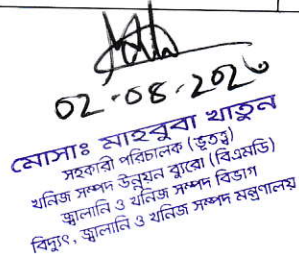 02-08-2026
মোসাঃ মাহবুবা খাতুন
সহকারী পরিচালক (ভূতত্ত্ব)
খনিজ সম্পদ উন্নয়ন ব্যুরো (বিএমডি)
জ্বালানি ও খনিজ সম্পদ বিভাগ
বিদ্যুৎ, জ্বালানি ও খনিজ সম্পদ মন্ত্রণালয়